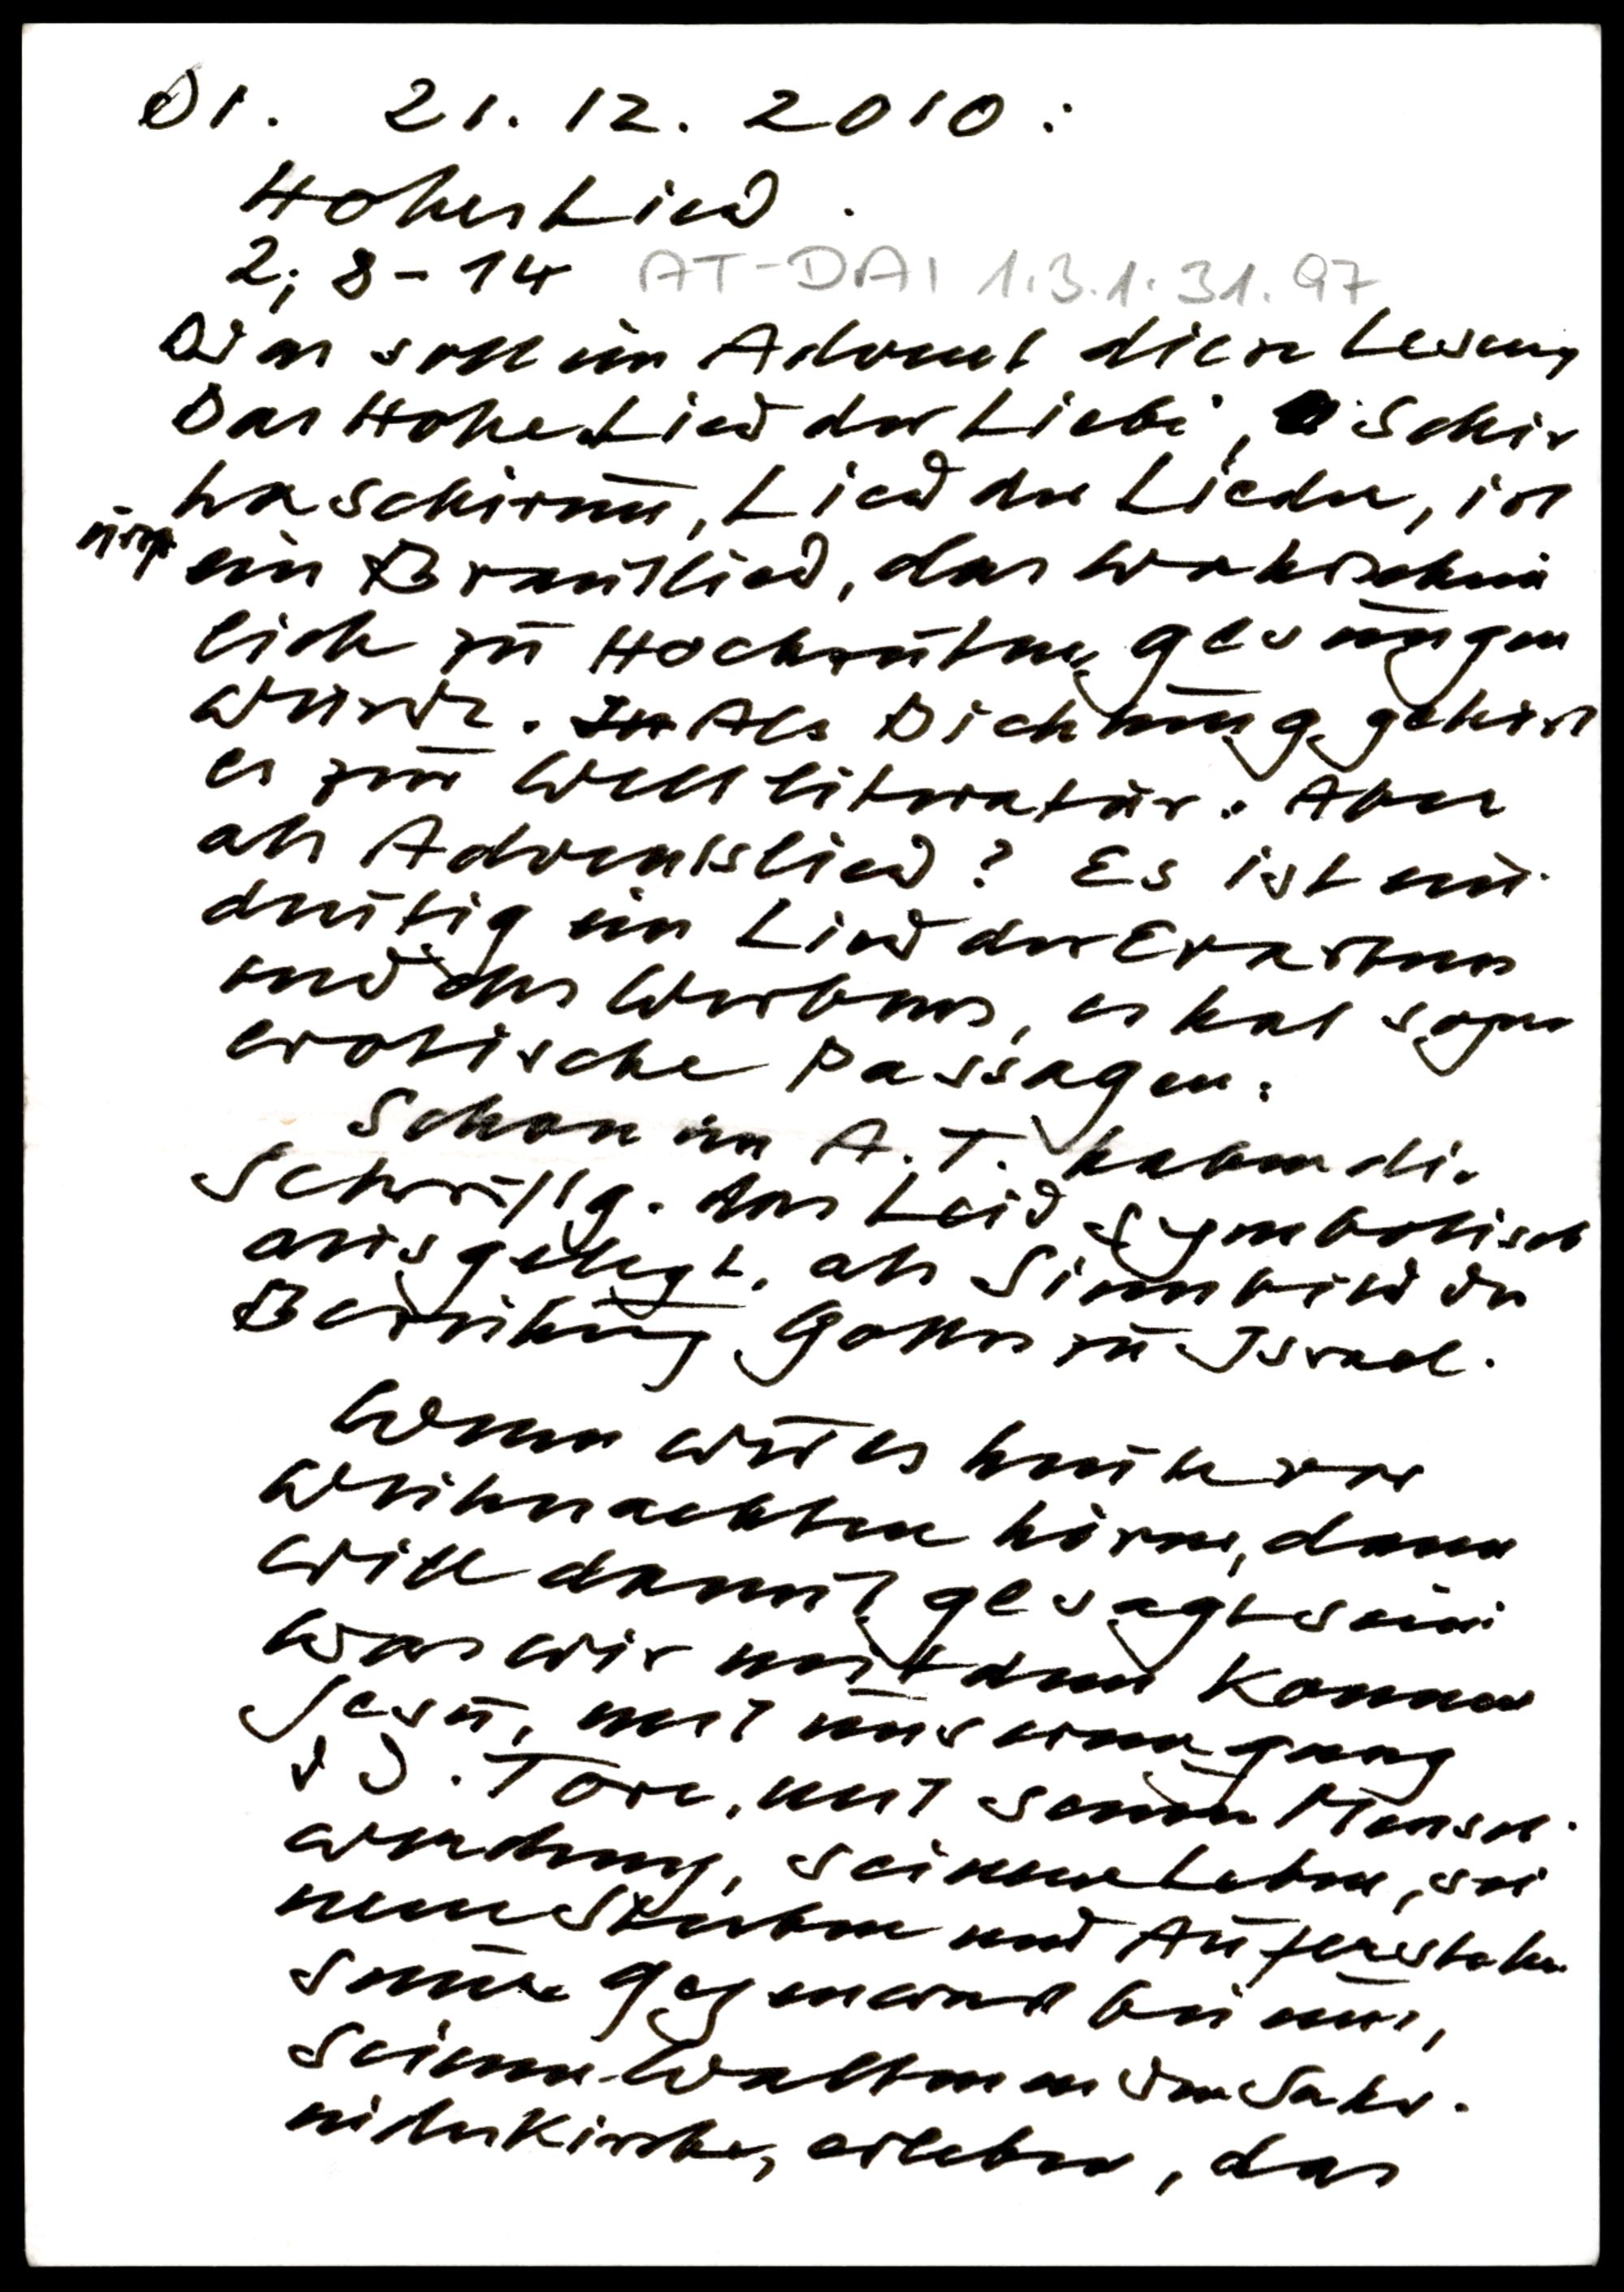 DI. 21.12.2010:
HohesLied.
2, 8-14 AT-DAI 1.3.1.31.97
Was soll im Advent diese Lesung
Das HoheLied der Liebe, Schir
ha schirim, Lied der Lieder, ist
urspr
ein Brautlied, das wahrschein
lich zu Hochzeiten gesungen
wurde. Als Dichtung gehört
es zur Weltliteratur. Aber
als Adventslied? Es ist ein-
deutig ein Lied der Erwartung
und des Werbens, es hat sogar
erotische Passagen.
Schon im A.T. haben die
Schriftg. das Leid symbolisch
ausgelegt, als Sinnbild der
Beziehung Gottes zu Israel.
Wenn wir es heute vor
Weihnachten hören, dann
will damit gesagt sein
was wir mit dem Kommen
Jesu, mit
Tore, mit seiner Mensch-
werdung, seinem Leben, sei
nem Sterben und Auferstehen
seine Gegenwart bei uns,
seinem Walten in den Sakr.
in der Kirche, erleben, das